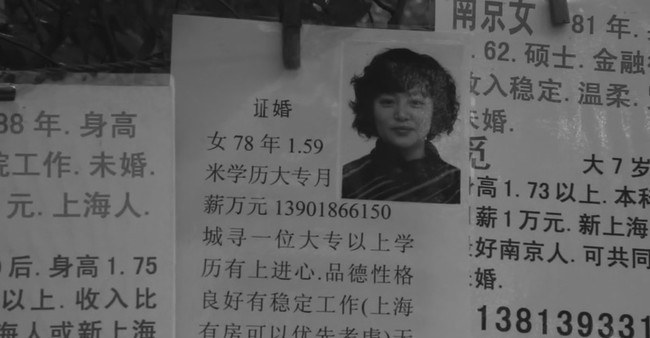 88 年. 身高
院工作. 未婚.
元. 上海人.
后. 身高 1.75
以上. 收入比
海人或新上海
证婚
女 78 年 1.59
米学历大专月
薪万元 13901866150
城寻一位大专以上学
历有上进心.品德性格
良好有稳定工作(上海
有房可以优先考虑)无
南京女 81 年.
.62. 硕士. 金融
收入稳定. 温柔.
未婚.
觅 大 7 岁
身高 1.73 以上. 本科
月薪 1 万元. 新上海
最好南京人. 可共同
婚.
138139331